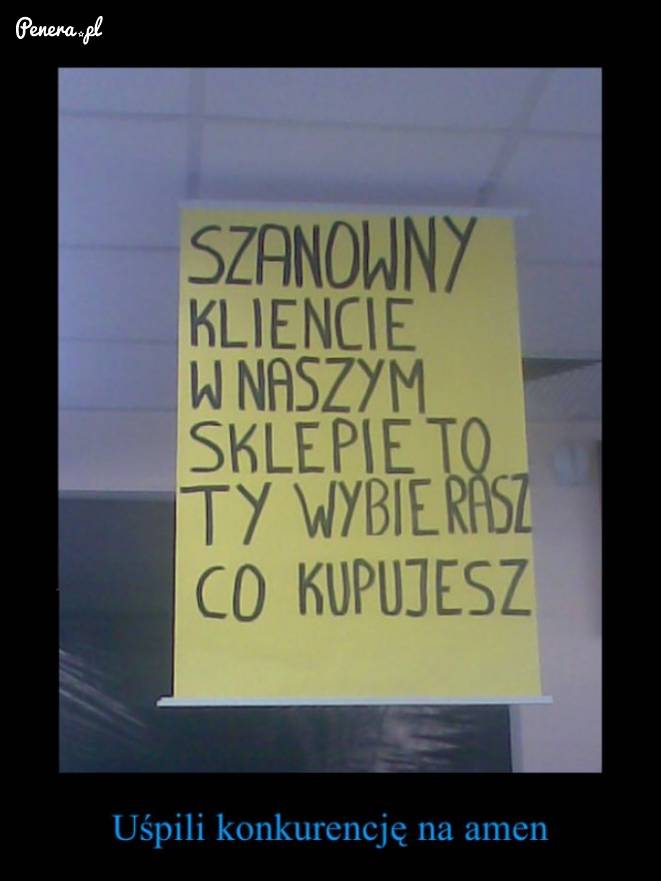 Penera.pl
SZANOWNY
KLIENCIE
W NASZYM
SKLEPIE TO
TY WYBIERASZ
CO KUPUJESZ
Uśpili konkurencję na amen